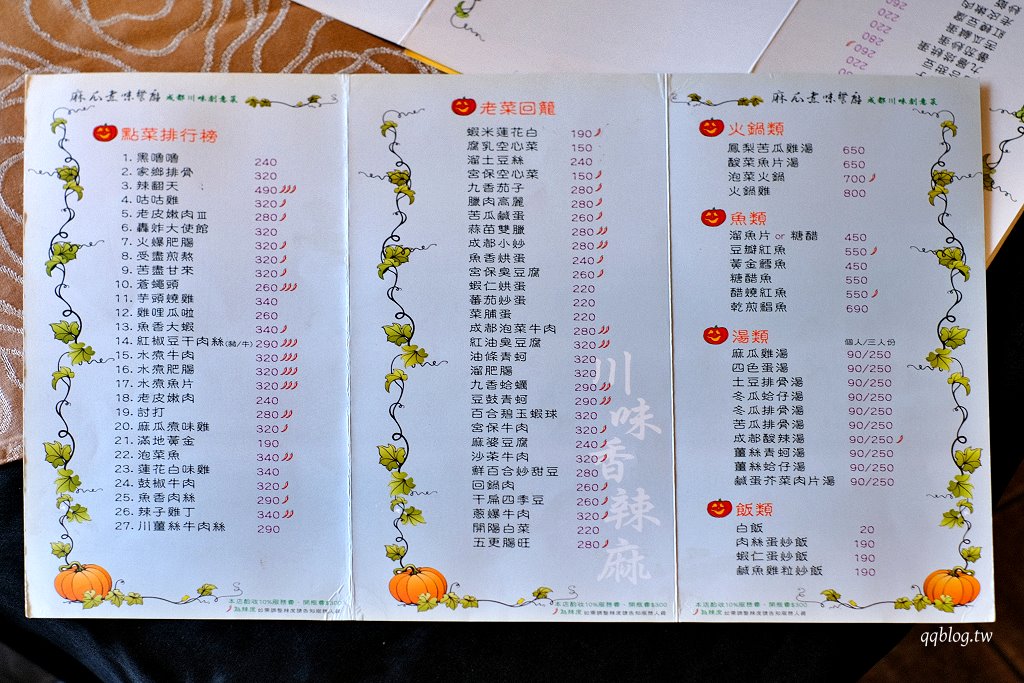 麻瓜煮味餐廚 成都川味創意菜
點菜排行榜
1. 黑嚕嚕 240
2. 家鄉排骨 320
3. 辣翻天 490
4. 咕咕雞 320
5. 老皮嫩肉Ⅲ 280
6. 轟炸大使館 320
7. 火爆肥腸 320
8. 受盡煎熬 320
9. 苦盡甘來 320
10. 蒼蠅頭 260
11. 芋頭燒雞 340
12. 雞哩瓜啦 260
13. 魚香大蝦 340
14. 紅椒豆干肉絲(豬/牛) 290
15. 水煮牛肉 320
16. 水煮肥腸 320
17. 水煮魚片 320
18. 老皮嫩肉 240
19. 討打 280
20. 麻瓜煮味雞 320
21. 滿地黃金 190
22. 泡菜魚 340
23. 蓮花白味雞 340
24. 鼓椒牛肉 320
25. 魚香肉絲 290
26. 辣子雞丁 340
27. 川薑絲牛肉絲 290
本店酌收10%服務費、開瓶費$300
為辣度 如需調整辣度請告知服務人員
老菜回籠
蝦米蓮花白 190
腐乳空心菜 150
溜土豆絲 240
宮保空心菜 150
九香茄子 280
臘肉高麗 280
苦瓜鹹蛋 260
蒜苗雙臘 280
成都小炒 280
魚香烘蛋 240
宮保臭豆腐 260
蝦仁烘蛋 220
蕃茄炒蛋 220
菜脯蛋 220
成都泡菜牛肉 280
紅油臭豆腐 320
油條青蚵 320
溜肥腸 320
九香蛤蠣 290
豆鼓青蚵 290
百合碧玉蝦球 320
宮保牛肉 320
麻婆豆腐 240
沙茶牛肉 320
鮮百合炒甜豆 280
回鍋肉 260
干扁四季豆 260
蔥爆牛肉 320
開陽白菜 220
五更腸旺 280
川味香辣麻
本店酌收10%服務費、開瓶費$300
為辣度 如需調整辣度請告知服務人員
麻瓜煮味餐廚 成都川味創意菜
火鍋類
鳳梨苦瓜雞湯 650
酸菜魚片湯 650
泡菜火鍋 700
火鍋雞 800
魚類
溜魚片 or 糖醋 450
豆瓣紅魚 550
黃金鱈魚 450
糖醋魚 550
醋燒紅魚 550
乾煎鯧魚 690
湯類 個人/三人份
麻瓜雞湯 90/250
四色蛋湯 90/250
土豆排骨湯 90/250
冬瓜蛤仔湯 90/250
冬瓜排骨湯 90/250
苦瓜排骨湯 90/250
成都酸辣湯 90/250
薑絲青蚵湯 90/250
薑絲蛤仔湯 90/250
鹹蛋芥菜肉片湯 90/250
飯類
白飯 20
肉絲蛋炒飯 190
蝦仁蛋炒飯 190
鹹魚雞粒炒飯 190
本店酌收10%服務費、開瓶費$300
為辣度 如需調整辣度請告知服務人員
qqblog.tw